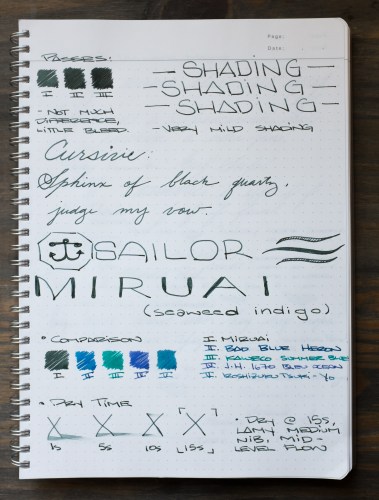 Page:
Date:
PASSES:
I II III
- NOT MUCH
DIFFERENCE,
LITTLE BLEED.
— SHADING —
— SHADING —
— SHADING —
- VERY MILD SHADING
Cursive:
Sphinx of black quartz,
judge my vow.
SAILOR
MIRUAI
(seaweed indigo)
• COMPARISON
I II III IV V
I. MIRUAI
II. BAD BLUE HERON
III. KAWECO SUMMER BLUE
IV. J.H. 1670 BLEU OCEAN
V. IROSHIZUKU TSUKI-YO
• DRY TIME
X X X X
1s 5s 10s 15s
• DRY @ 15s,
LAMY MEDIUM
NIB, MID-
LEVEL FLOW